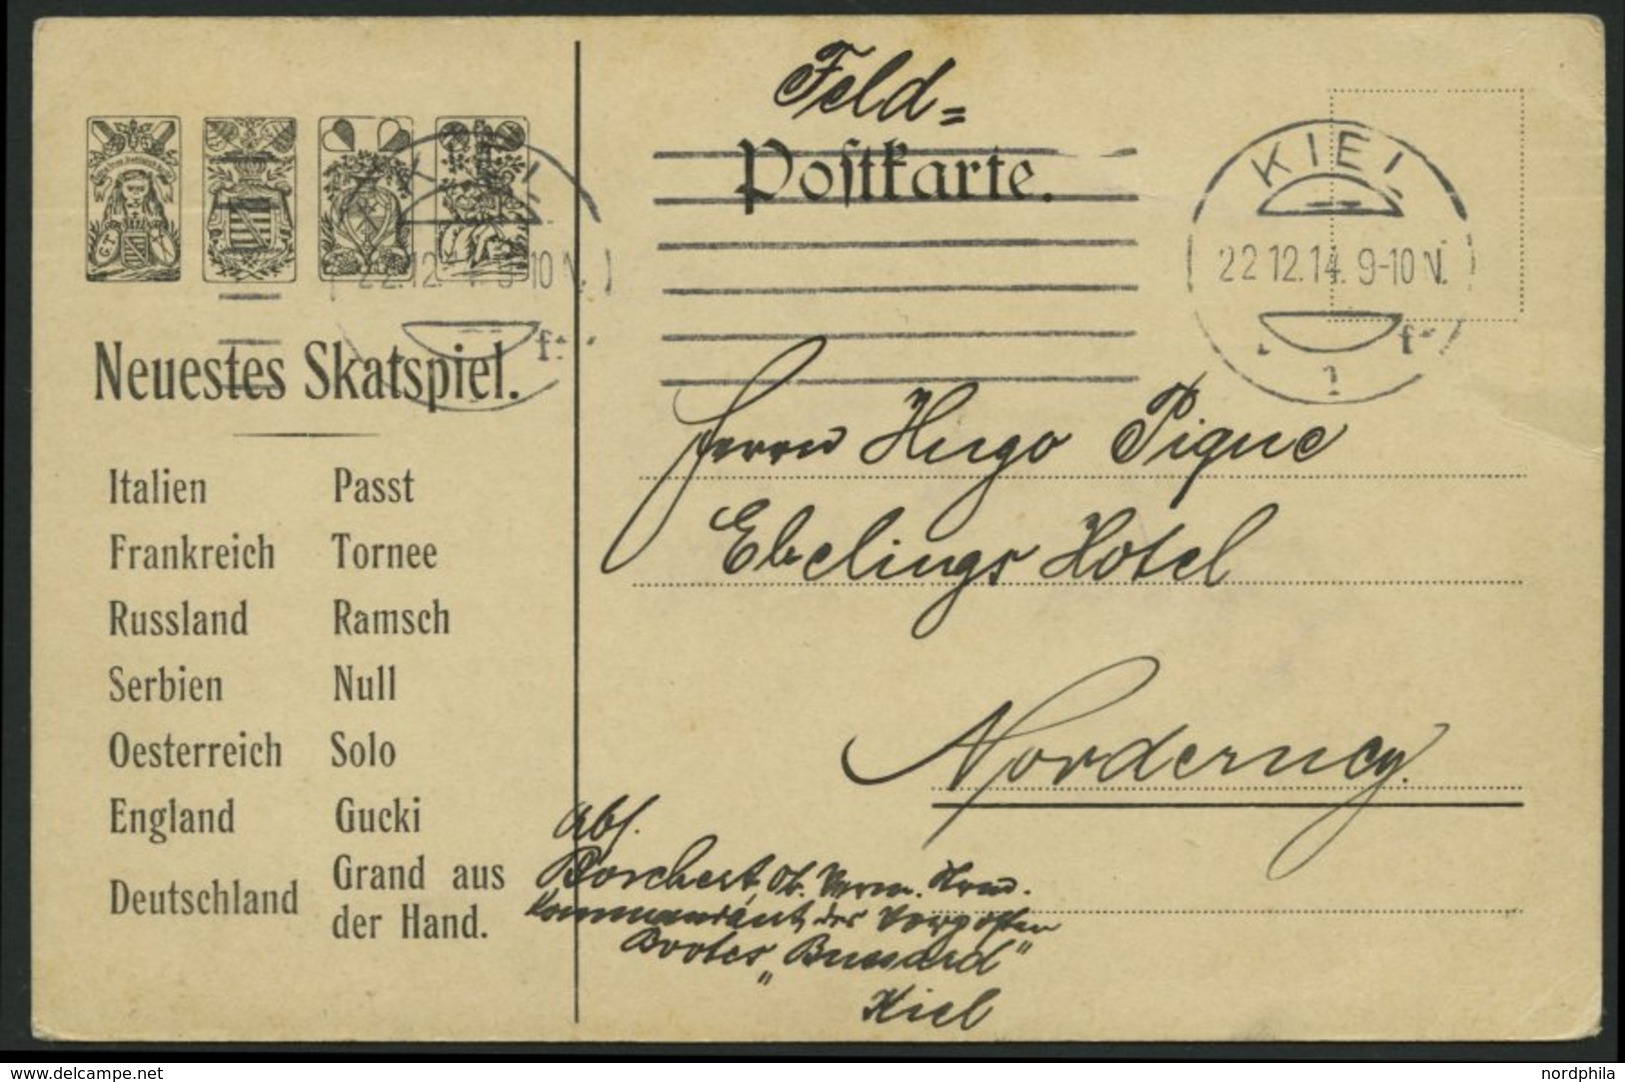 Feld=
Postkarte.
KIEL
22.12.14. 9-10 N.
f
1
Neuestes Skatspiel.
Italien Passt
Frankreich Tornee
Russland Ramsch
Serbien Null
Oesterreich Solo
England Gucki
Deutschland Grand aus der Hand.
Herrn Hugo Pique
Ebelings Hotel
Norderney.
Abs.
Borchert, Ob. Verm. Strm.
Kommandant des Vorposten
Bootes „Bussard"
Kiel
www.delcampe.net
nordphila